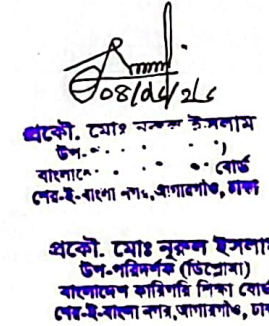 ০৪/০৫/২৫
প্রকৌ. মোঃ নূরুল ইসলাম
উপ-
বোর্ড
শের-ই-বাংলা নগর, আগারগাঁও, ঢাকা
প্রকৌ. মোঃ নূরুল ইসলা
উপ-পরিদর্শক (ডিপ্লোমা)
বাংলাদেশ কারিগরি শিক্ষা বো
শের-ই-বাংলা নগর, আগারগাঁও, ঢা